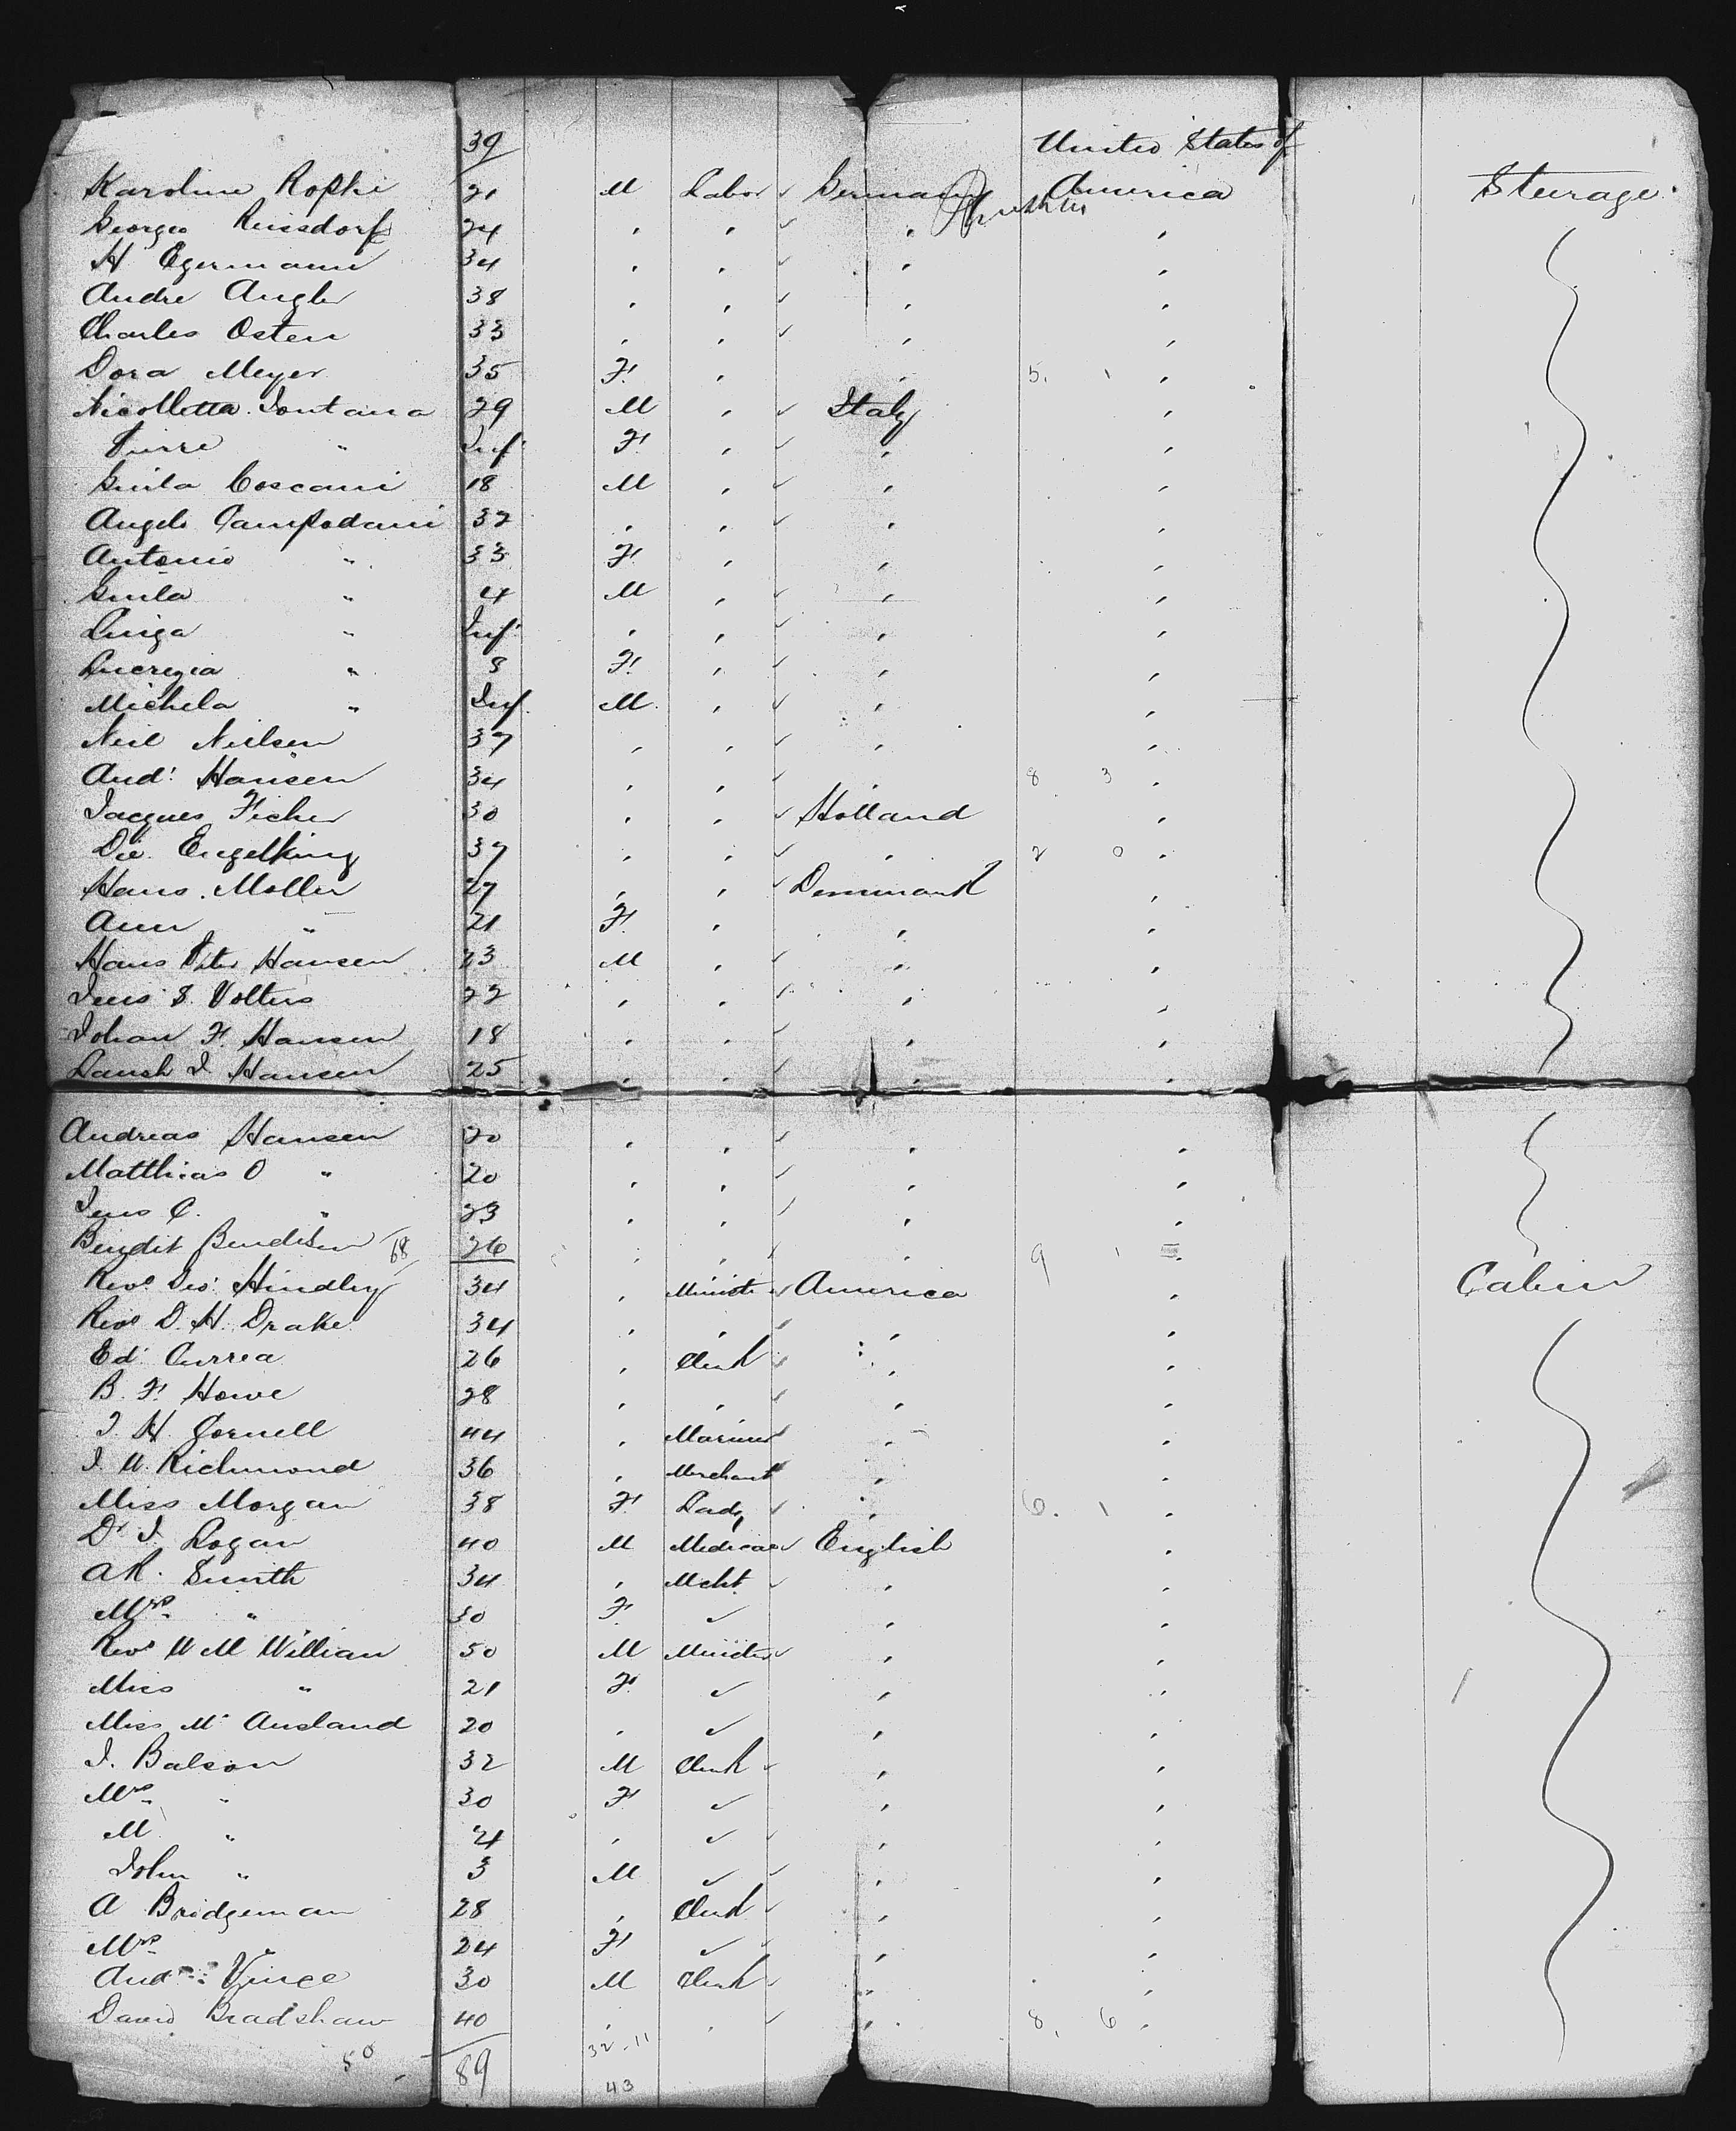 39 United States of
Karoline Rophi 21 M Labor ✓ German Prussia America Steerage
Georges Reissdorf 24 , , ✓ , ,
H Egermann 34 , , ✓ , ,
Andre Angler 38 , , ✓ , ,
Charles Osten 33 , , ✓ , ,
Dora Meyer 35 F. , , 5. 1 ,
Nicolletta Fontana 29 M , ✓ Italy ,
Pierre " Inf F. , ✓ , ,
Guila Coscani 18 M , ✓ , ,
Angelo Campodani 32 , , ✓ , ,
Antonio " 33 F. , , ,
Guila " 4 M , ✓ , ,
Luiga " Inf , , ✓ , ,
Lucrezia " 8 F. , ✓ , ,
Michela " Inf. M. , ✓ , ,
Neil Neilsen 37 , , ✓ , ,
And. Hansen 34 , , ✓ , 8 3 ,
Jacques Ficher 30 , , ✓ Holland ,
Engelking 37 , , ✓ , 2 0 ,
Hans Moller 27 , , ✓ Denmark ,
Ann " 21 F. , , ,
Hans Peter Hansen 23 M , ✓ , ,
Jens S. Volters 22 , , ✓ , ,
Johan F. Hansen 18 , , ✓ , ,
J. Hansen 25 , , ✓ , ,
Andreas Hansen 20 , , ✓ , ,
Matthias O " 20 , , ✓ , ,
Jens C. " 23 , , ✓ , ,
Bendit Benditsen 68 26 , , ✓ , 9 1 ,
Revd Geo. Hindley 34 , Ministe ✓ America , Cabin
Revd D. H. Drake 34 , , ✓ , ,
Ed. Currea 26 , Clerk ✓ , ,
B. F. Howe 28 , , ✓ , ,
J. H. Cornell 44 , Mariner ✓ , ,
J. W. Richmond 36 , Merchant , ,
Miss Morgan 38 F. Lady ✓ , 6. 1 ,
Dr J. Logan 40 M Medical ✓ English ,
A R. Smith 34 , Mcht. ✓ , ,
Mrs " 30 F. ✓ , ,
Revd W M Willian 50 M Minister ✓ , ,
Miss " 21 F. ✓ , ,
Miss Mc Ausland 20 , ✓ , ,
J. Balson 32 M Clerk ✓ , ,
Mrs " 30 F. ✓ , ,
M " 4 , ✓ ✓ , ,
John " 3 M ✓ ✓ , ,
A Bridgeman 28 , Clerk ✓ , ,
Mrs " 24 F. ✓ ✓ , ,
And. Vince 30 M Clerk ✓ , ,
David Bradshaw 40 , , ✓ , 8, 6 ,
50 89 32-11
43